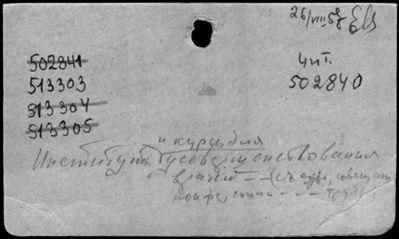 26/VIII 58
502841
513303
513304
513305
чит.
502840
и курсы для
Институт усовершенствования
врачей – (съезды, совещан.
конференции – – труды